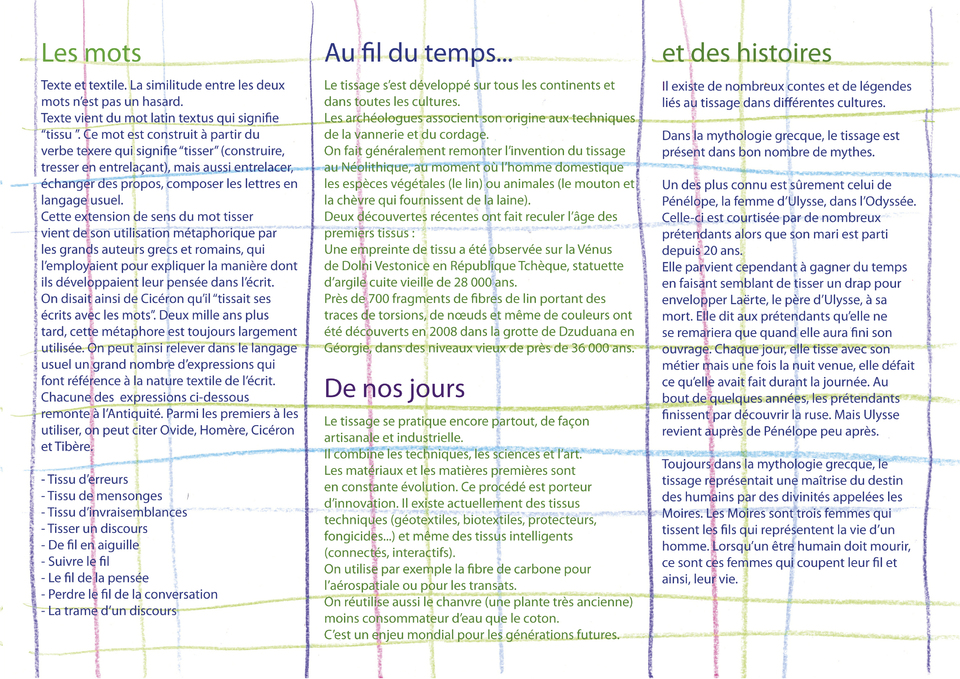 Les mots
Texte et textile. La similitude entre les deux
mots n'est pas un hasard.
Texte vient du mot latin textus qui signifie
“tissu ”. Ce mot est construit à partir du
verbe texere qui signifie “tisser” (construire,
tresser en entrelaçant), mais aussi entrelacer,
échanger des propos, composer les lettres en
langage usuel.
Cette extension de sens du mot tisser
vient de son utilisation métaphorique par
les grands auteurs grecs et romains, qui
l'employaient pour expliquer la manière dont
ils développaient leur pensée dans l'écrit.
On disait ainsi de Cicéron qu'il “tissait ses
écrits avec les mots”. Deux mille ans plus
tard, cette métaphore est toujours largement
utilisée. On peut ainsi relever dans le langage
usuel un grand nombre d'expressions qui
font référence à la nature textile de l'écrit.
Chacune des expressions ci-dessous
remonte à l'Antiquité. Parmi les premiers à les
utiliser, on peut citer Ovide, Homère, Cicéron
et Tibère.
- Tissu d'erreurs
- Tissu de mensonges
- Tissu d'invraisemblances
- Tisser un discours
- De fil en aiguille
- Suivre le fil
- Le fil de la pensée
- Perdre le fil de la conversation
- La trame d'un discours
Au fil du temps...
Le tissage s'est développé sur tous les continents et
dans toutes les cultures.
Les archéologues associent son origine aux techniques
de la vannerie et du cordage.
On fait généralement remonter l'invention du tissage
au Néolithique, au moment où l'homme domestique
les espèces végétales (le lin) ou animales (le mouton et
la chèvre qui fournissent de la laine).
Deux découvertes récentes ont fait reculer l'âge des
premiers tissus :
Une empreinte de tissu a été observée sur la Vénus
de Dolni Vestonice en République Tchèque, statuette
d'argile cuite vieille de 28 000 ans.
Près de 700 fragments de fibres de lin portant des
traces de torsions, de nœuds et même de couleurs ont
été découverts en 2008 dans la grotte de Dzuduana en
Géorgie, dans des niveaux vieux de près de 36 000 ans.
De nos jours
Le tissage se pratique encore partout, de façon
artisanale et industrielle.
Il combine les techniques, les sciences et l'art.
Les matériaux et les matières premières sont
en constante évolution. Ce procédé est porteur
d'innovation. Il existe actuellement des tissus
techniques (géotextiles, biotextiles, protecteurs,
fongicides...) et même des tissus intelligents
(connectés, interactifs).
On utilise par exemple la fibre de carbone pour
l'aérospatiale ou pour les transats.
On réutilise aussi le chanvre (une plante très ancienne)
moins consommateur d'eau que le coton.
C'est un enjeu mondial pour les générations futures.
et des histoires
Il existe de nombreux contes et de légendes
liés au tissage dans différentes cultures.
Dans la mythologie grecque, le tissage est
présent dans bon nombre de mythes.
Un des plus connu est sûrement celui de
Pénélope, la femme d'Ulysse, dans l'Odyssée.
Celle-ci est courtisée par de nombreux
prétendants alors que son mari est parti
depuis 20 ans.
Elle parvient cependant à gagner du temps
en faisant semblant de tisser un drap pour
envelopper Laërte, le père d'Ulysse, à sa
mort. Elle dit aux prétendants qu'elle ne
se remariera que quand elle aura fini son
ouvrage. Chaque jour, elle tisse avec son
métier mais une fois la nuit venue, elle défait
ce qu'elle avait fait durant la journée. Au
bout de quelques années, les prétendants
finissent par découvrir la ruse. Mais Ulysse
revient auprès de Pénélope peu après.
Toujours dans la mythologie grecque, le
tissage représentait une maîtrise du destin
des humains par des divinités appelées les
Moires. Les Moires sont trois femmes qui
tissent les fils qui représentent la vie d'un
homme. Lorsqu'un être humain doit mourir,
ce sont ces femmes qui coupent leur fil et
ainsi, leur vie.